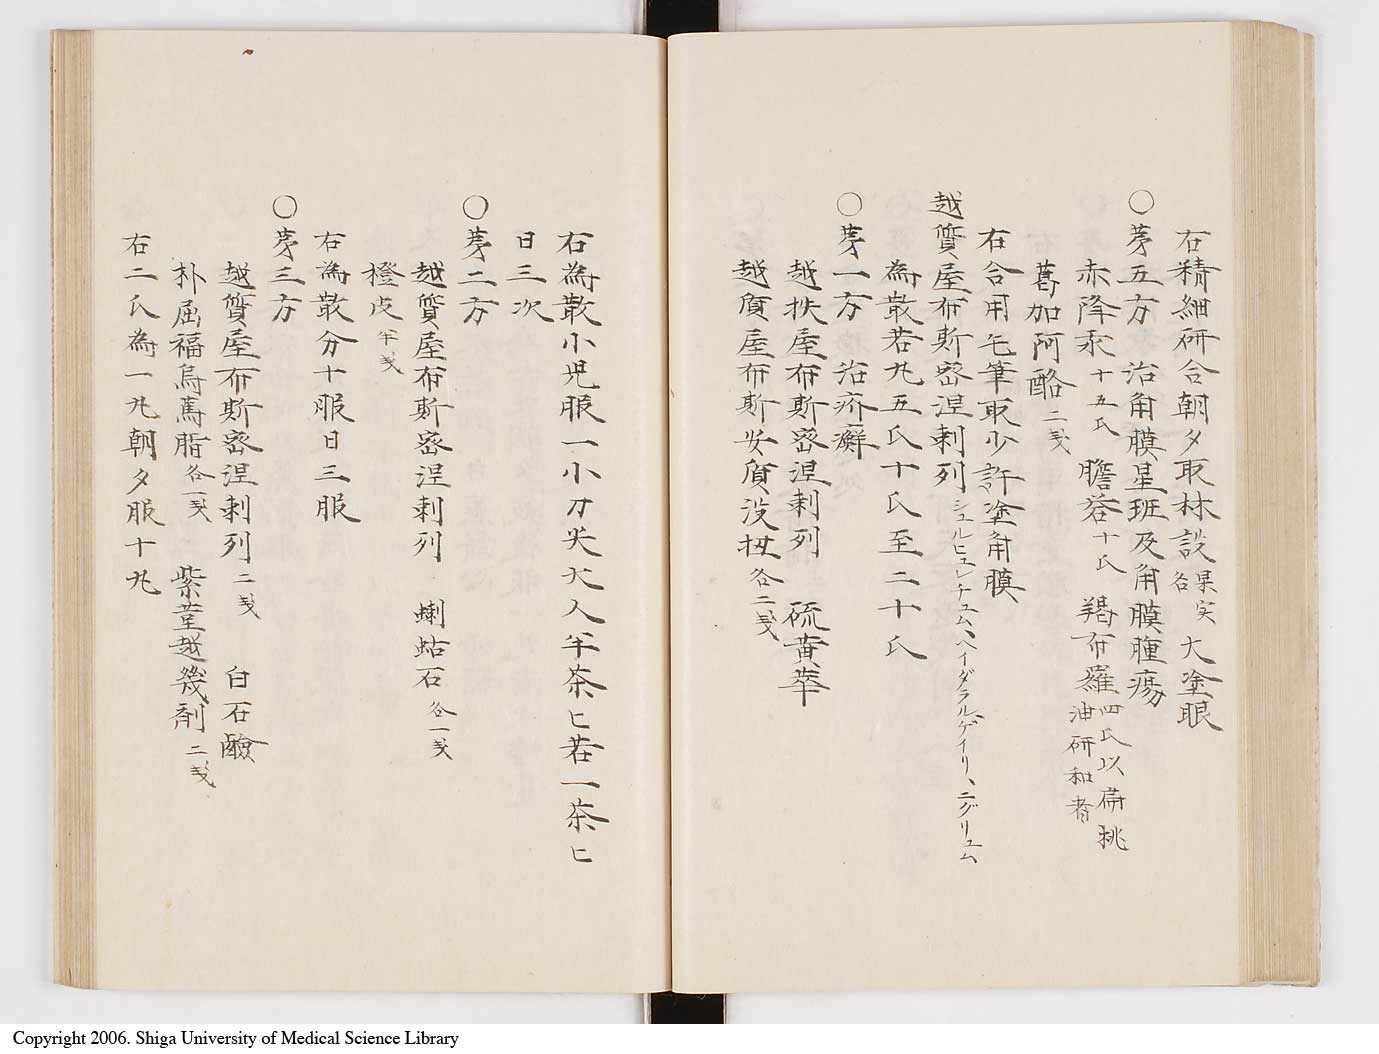 右精細研合朝夕取林設果実各大塗眼
〇第五方 治角膜星班及角膜腫瘍
赤降汞十五氏 膽礬十氏 羯布羅四氏以扁桃油研和者
葛加阿酪二戔
右合用毛筆取少許塗角膜
越質屋布斯密涅剌列シュルヒュレチュム、ヘイダラルゲイリ、ニグリュム
為散若丸五氏十氏至二十氏
〇第一方 治疥癬
越抶屋布斯密涅剌列 硫黄華
越質屋布斯安質没扭各二戔
右為散小児服一小刀尖大人半茶匕若一茶匕
日三次
〇第二方
越質屋布斯密涅剌列 蜊蛄石各一戔
橙皮半戔
右為散分十服日三服
〇第三方
越質屋布斯密涅剌列二戔 白石鹸
朴屈福烏蔫脂各一戔 紫菫越幾剤二戔
右二氏為一丸朝夕服十丸
Copyright 2006. Shiga University of Medical Science Library